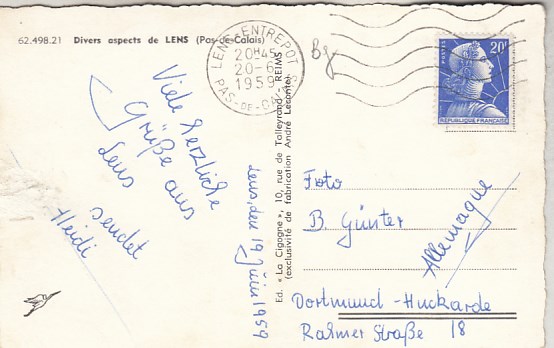 62.498.21 Divers aspects de LENS (Pas-de-Calais)
LENS-ENTREPOT
20H45
20-6
1959
PAS-DE-CALAIS
POSTES 20F
REPUBLIQUE FRANÇAISE
Viele herzliche
Grüße aus
Lens sendet
Heidi
Lens, den 19. Juni 1959
Ed. « La Cigogne », 10, rue de Talleyrand - REIMS
(exclusivité de fabrication André Leconte)
Foto
B. Günter
Allemagne
Dortmund-Huckarde
Ralmer Straße 18